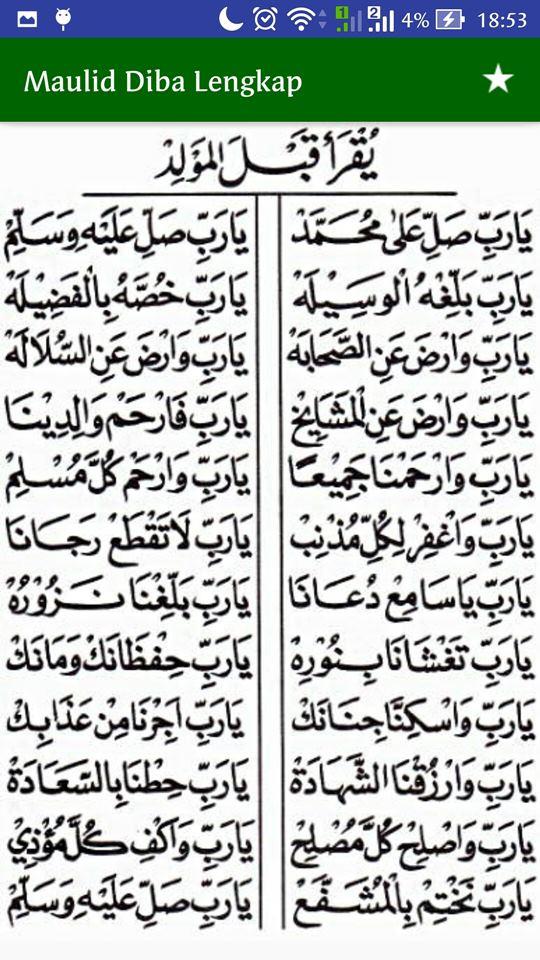 4% 18:53
Maulid Diba Lengkap
يُقْرَأُ قَبْلَ الْمَوْلِدْ
يَارَبِّ صَلِّ عَلىٰ مُحَمَّدْ يَارَبِّ صَلِّ عَلَيْهِ وَسَلِّمْ
يَارَبِّ بَلِّغْهُ الْوَسِيْلَهْ يَارَبِّ خُصَّهُ بِالْفَضِيْلَهْ
يَارَبِّ وَارْضَ عَنِ الصَّحَابَهْ يَارَبِّ وَارْضَ عَنِ السُّلَالَهْ
يَارَبِّ وَارْضَ عَنِ الْمَشَايِخْ يَارَبِّ فَارْحَمْ وَالِدِيْنَا
يَارَبِّ وَارْحَمْنَا جَمِيْعًا يَارَبِّ وَارْحَمْ كُلَّ مُسْلِمْ
يَارَبِّ وَاغْفِرْ لِكُلِّ مُذْنِبْ يَارَبِّ لَا تَقْطَعْ رَجَانَا
يَارَبِّ يَاسَامِعْ دُعَانَا يَارَبِّ بَلِّغْنَا نَزُوْرُهْ
يَارَبِّ تَغْشَانَا بِنُوْرِهْ يَارَبِّ حِفْظَانَكْ وَمَانَكْ
يَارَبِّ وَاسْكِنَّا جِنَانَكْ يَارَبِّ اَجِرْنَا مِنْ عَذَابِكْ
يَارَبِّ وَارْزُقْنَا الشَّهَادَةْ يَارَبِّ حِطْنَا بِالسَّعَادَةْ
يَارَبِّ وَاصْلِحْ كُلَّ مُصْلِحْ يَارَبِّ وَاكْفِ كُلَّ مُؤْذِيْ
يَارَبِّ نَخْتِمْ بِالْمُشَفَّعْ يَارَبِّ صَلِّ عَلَيْهِ وَسَلِّمْ